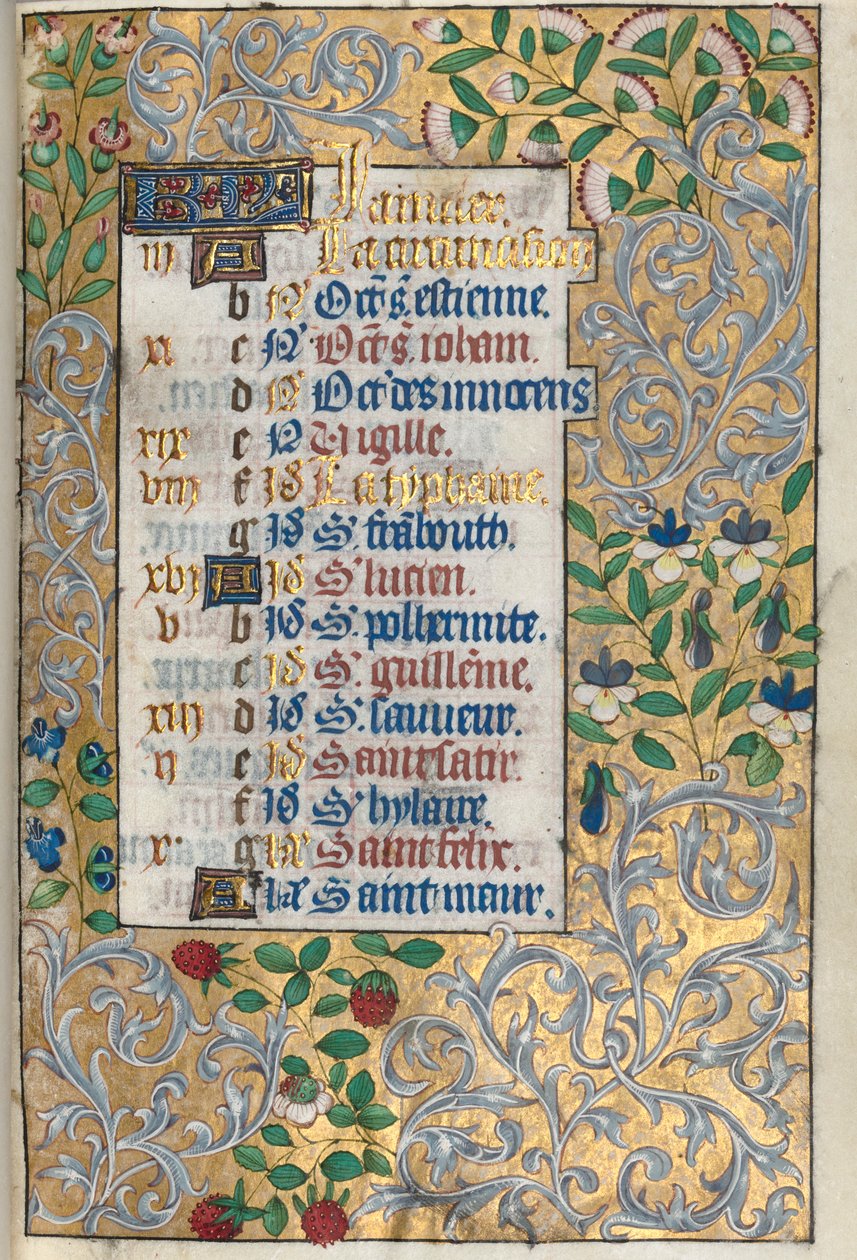 KL Januier.
iii A La circuncision
b N Oct. s. estienne.
xi c N Oct. s. iohain.
d N Oct. des innocens
xix e N Vigille.
viii f Id La typhaine.
g Id S. frãbouth.
xvi A Id S. lucien.
v b Id S. pol hermite.
c Id S. guillẽme.
xiii d Id S. sauueur.
ii e Id Saint satir.
f Id S. hylaire.
x. g kł Saint felix.
A kł Saint maur.